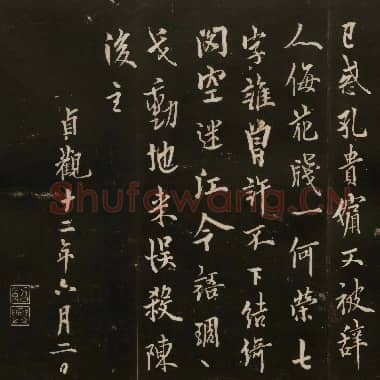 已惑孔貴嬪又被辞
人侮花牋一何榮七
字誰曾許不下結綺
閣空迷江令語琱丶
戈動地来悮殺陳
後主
貞觀十二年六月二日
Shufawang.CN